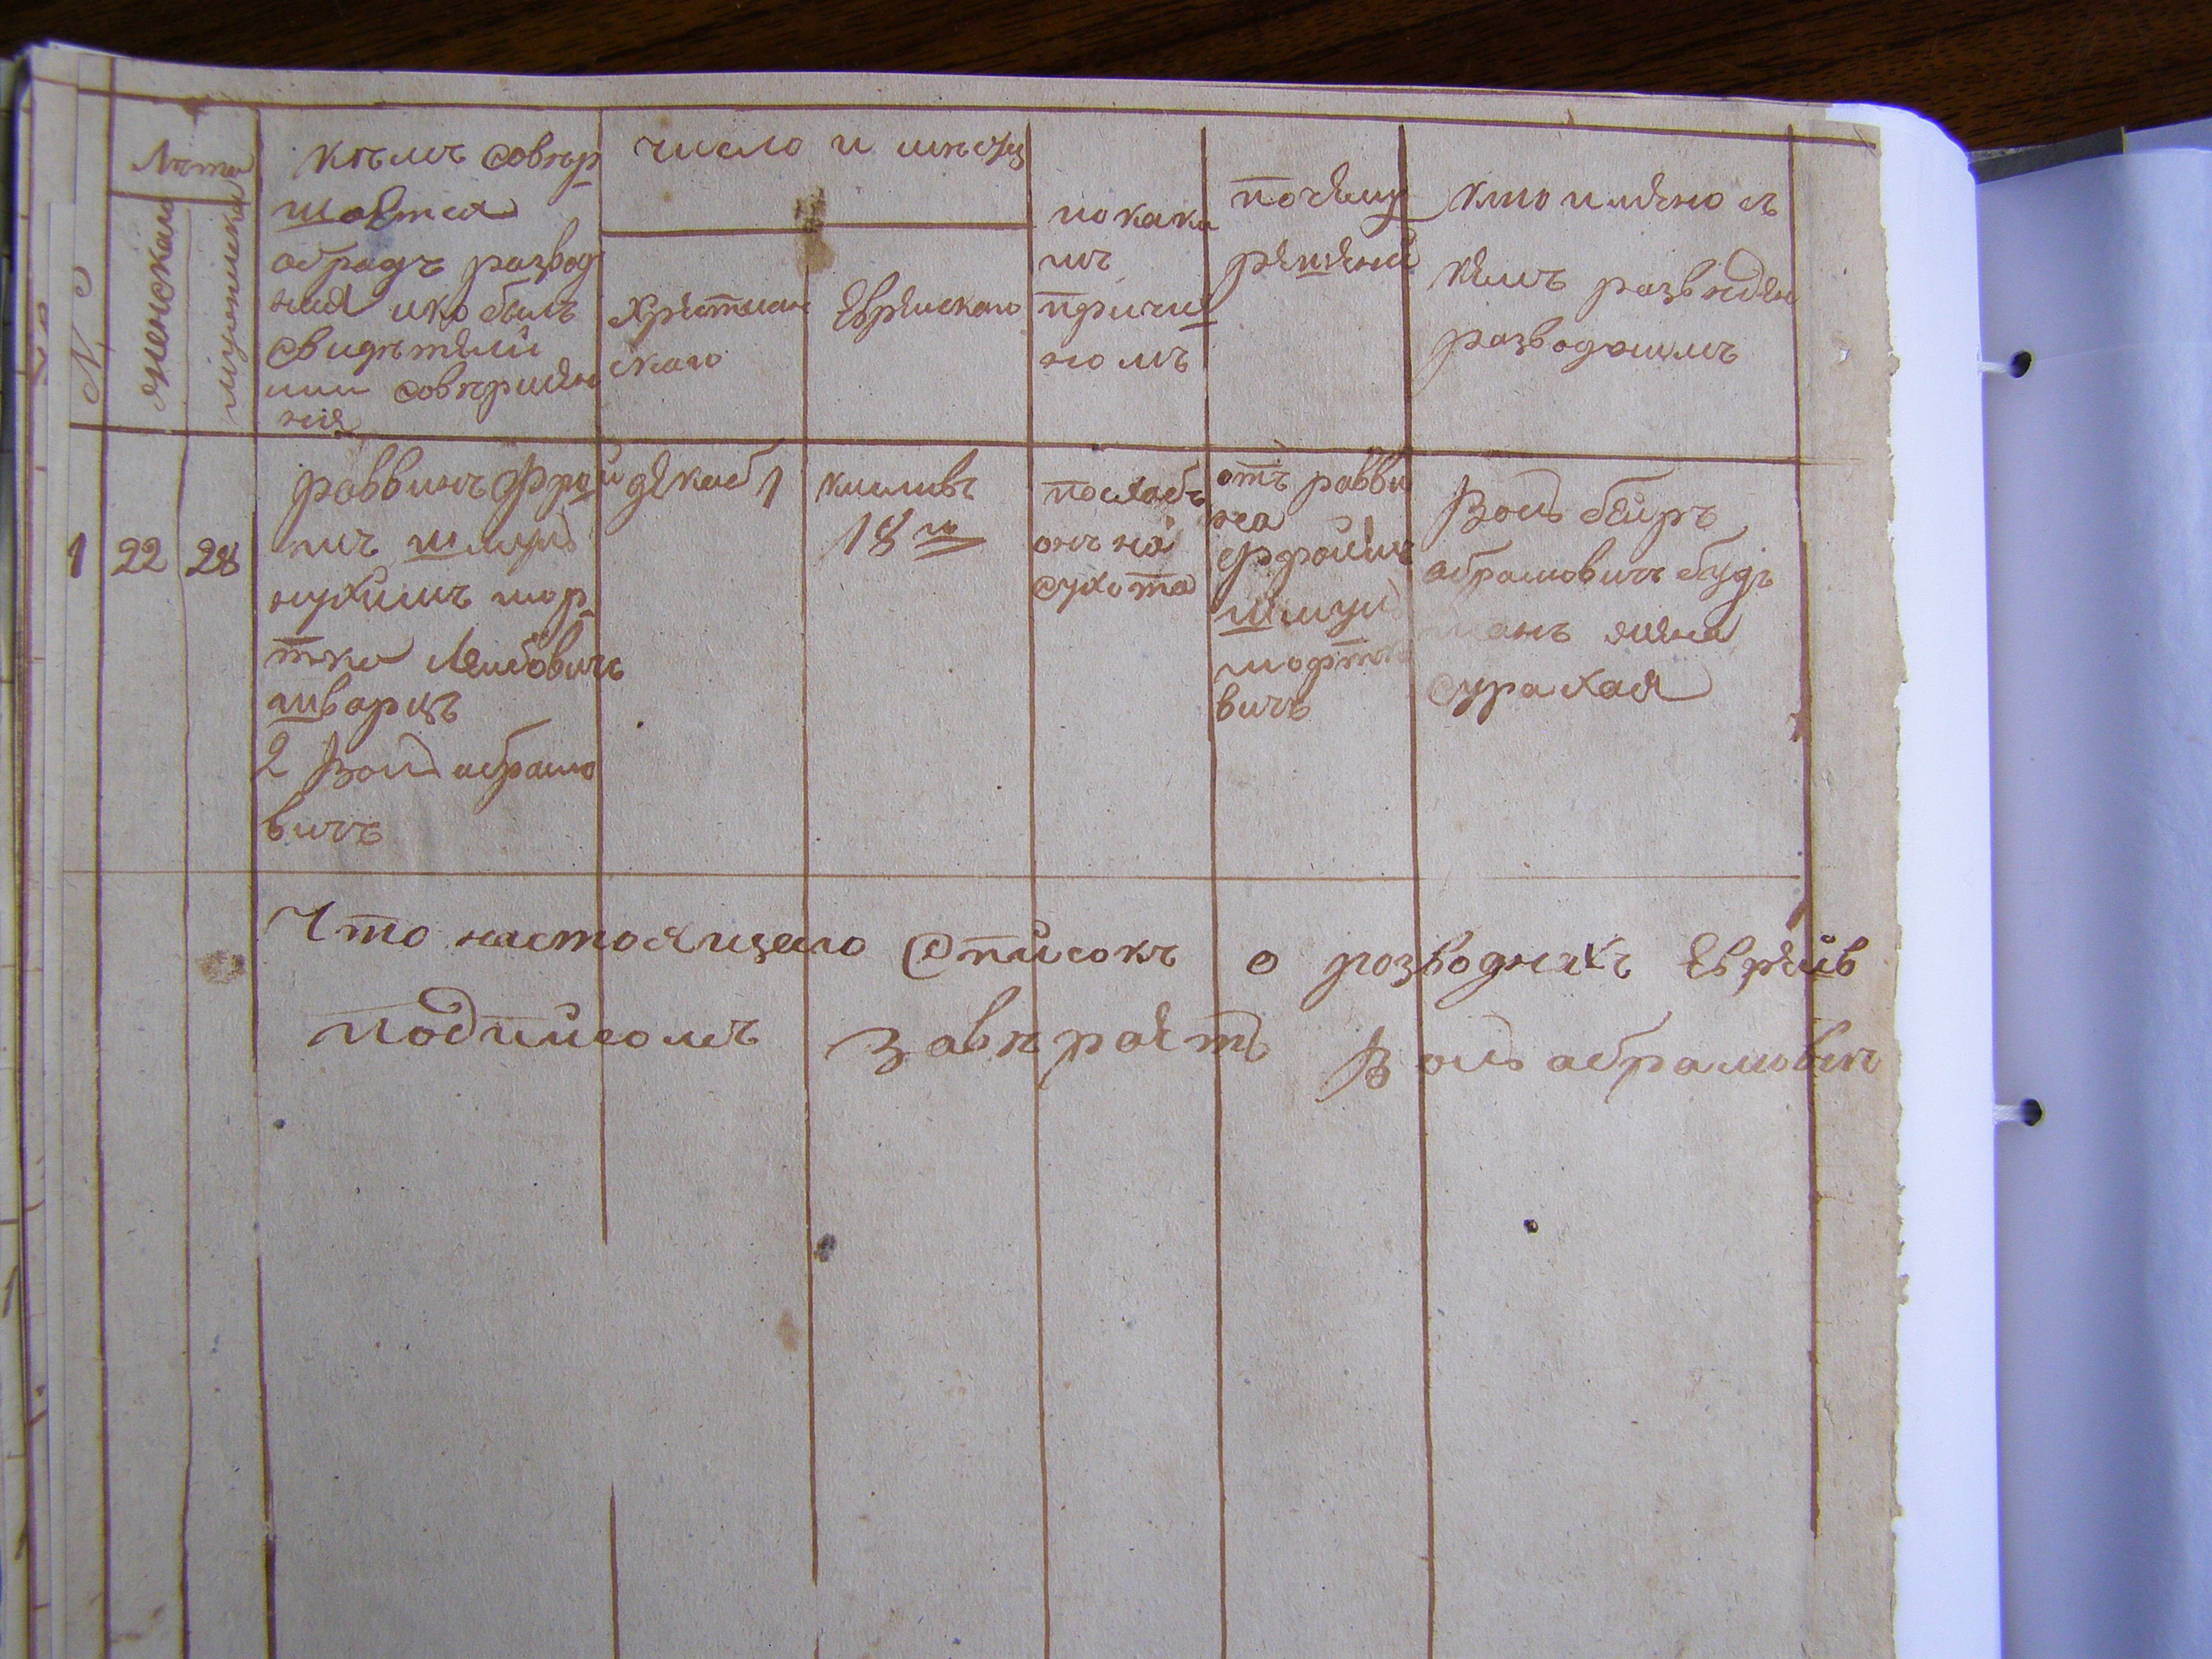 №
Лѣта
женскаго
мужескаго
кѣмъ совѣр
шаетса
обрадъ развод
ния ико былъ
свидѣтели
при совѣршен
ия
число и мѣсяц
Христиан
скаго
Еврейскаго
по кака
мъ
причи
номъ
почему
решений
кто именно съ
кемъ разведен
разводомъ
1
22
28
раввинъ Фрои
имъ шмуй
нухимъ мор
тко Лейбовичъ
шварцъ
2 Волф абрамо
вичъ
декаб 1
кислевъ
18 го
по слаб
онъ на
сухота
отъ равви
на
Фроимъ
шмуй
мортко
вичъ
Волф беиръ
абрамовичъ будъ
манъ
сура хая
Что настоящего Список о розводнихъ Евреив
подписомъ заверает Волф абрамович